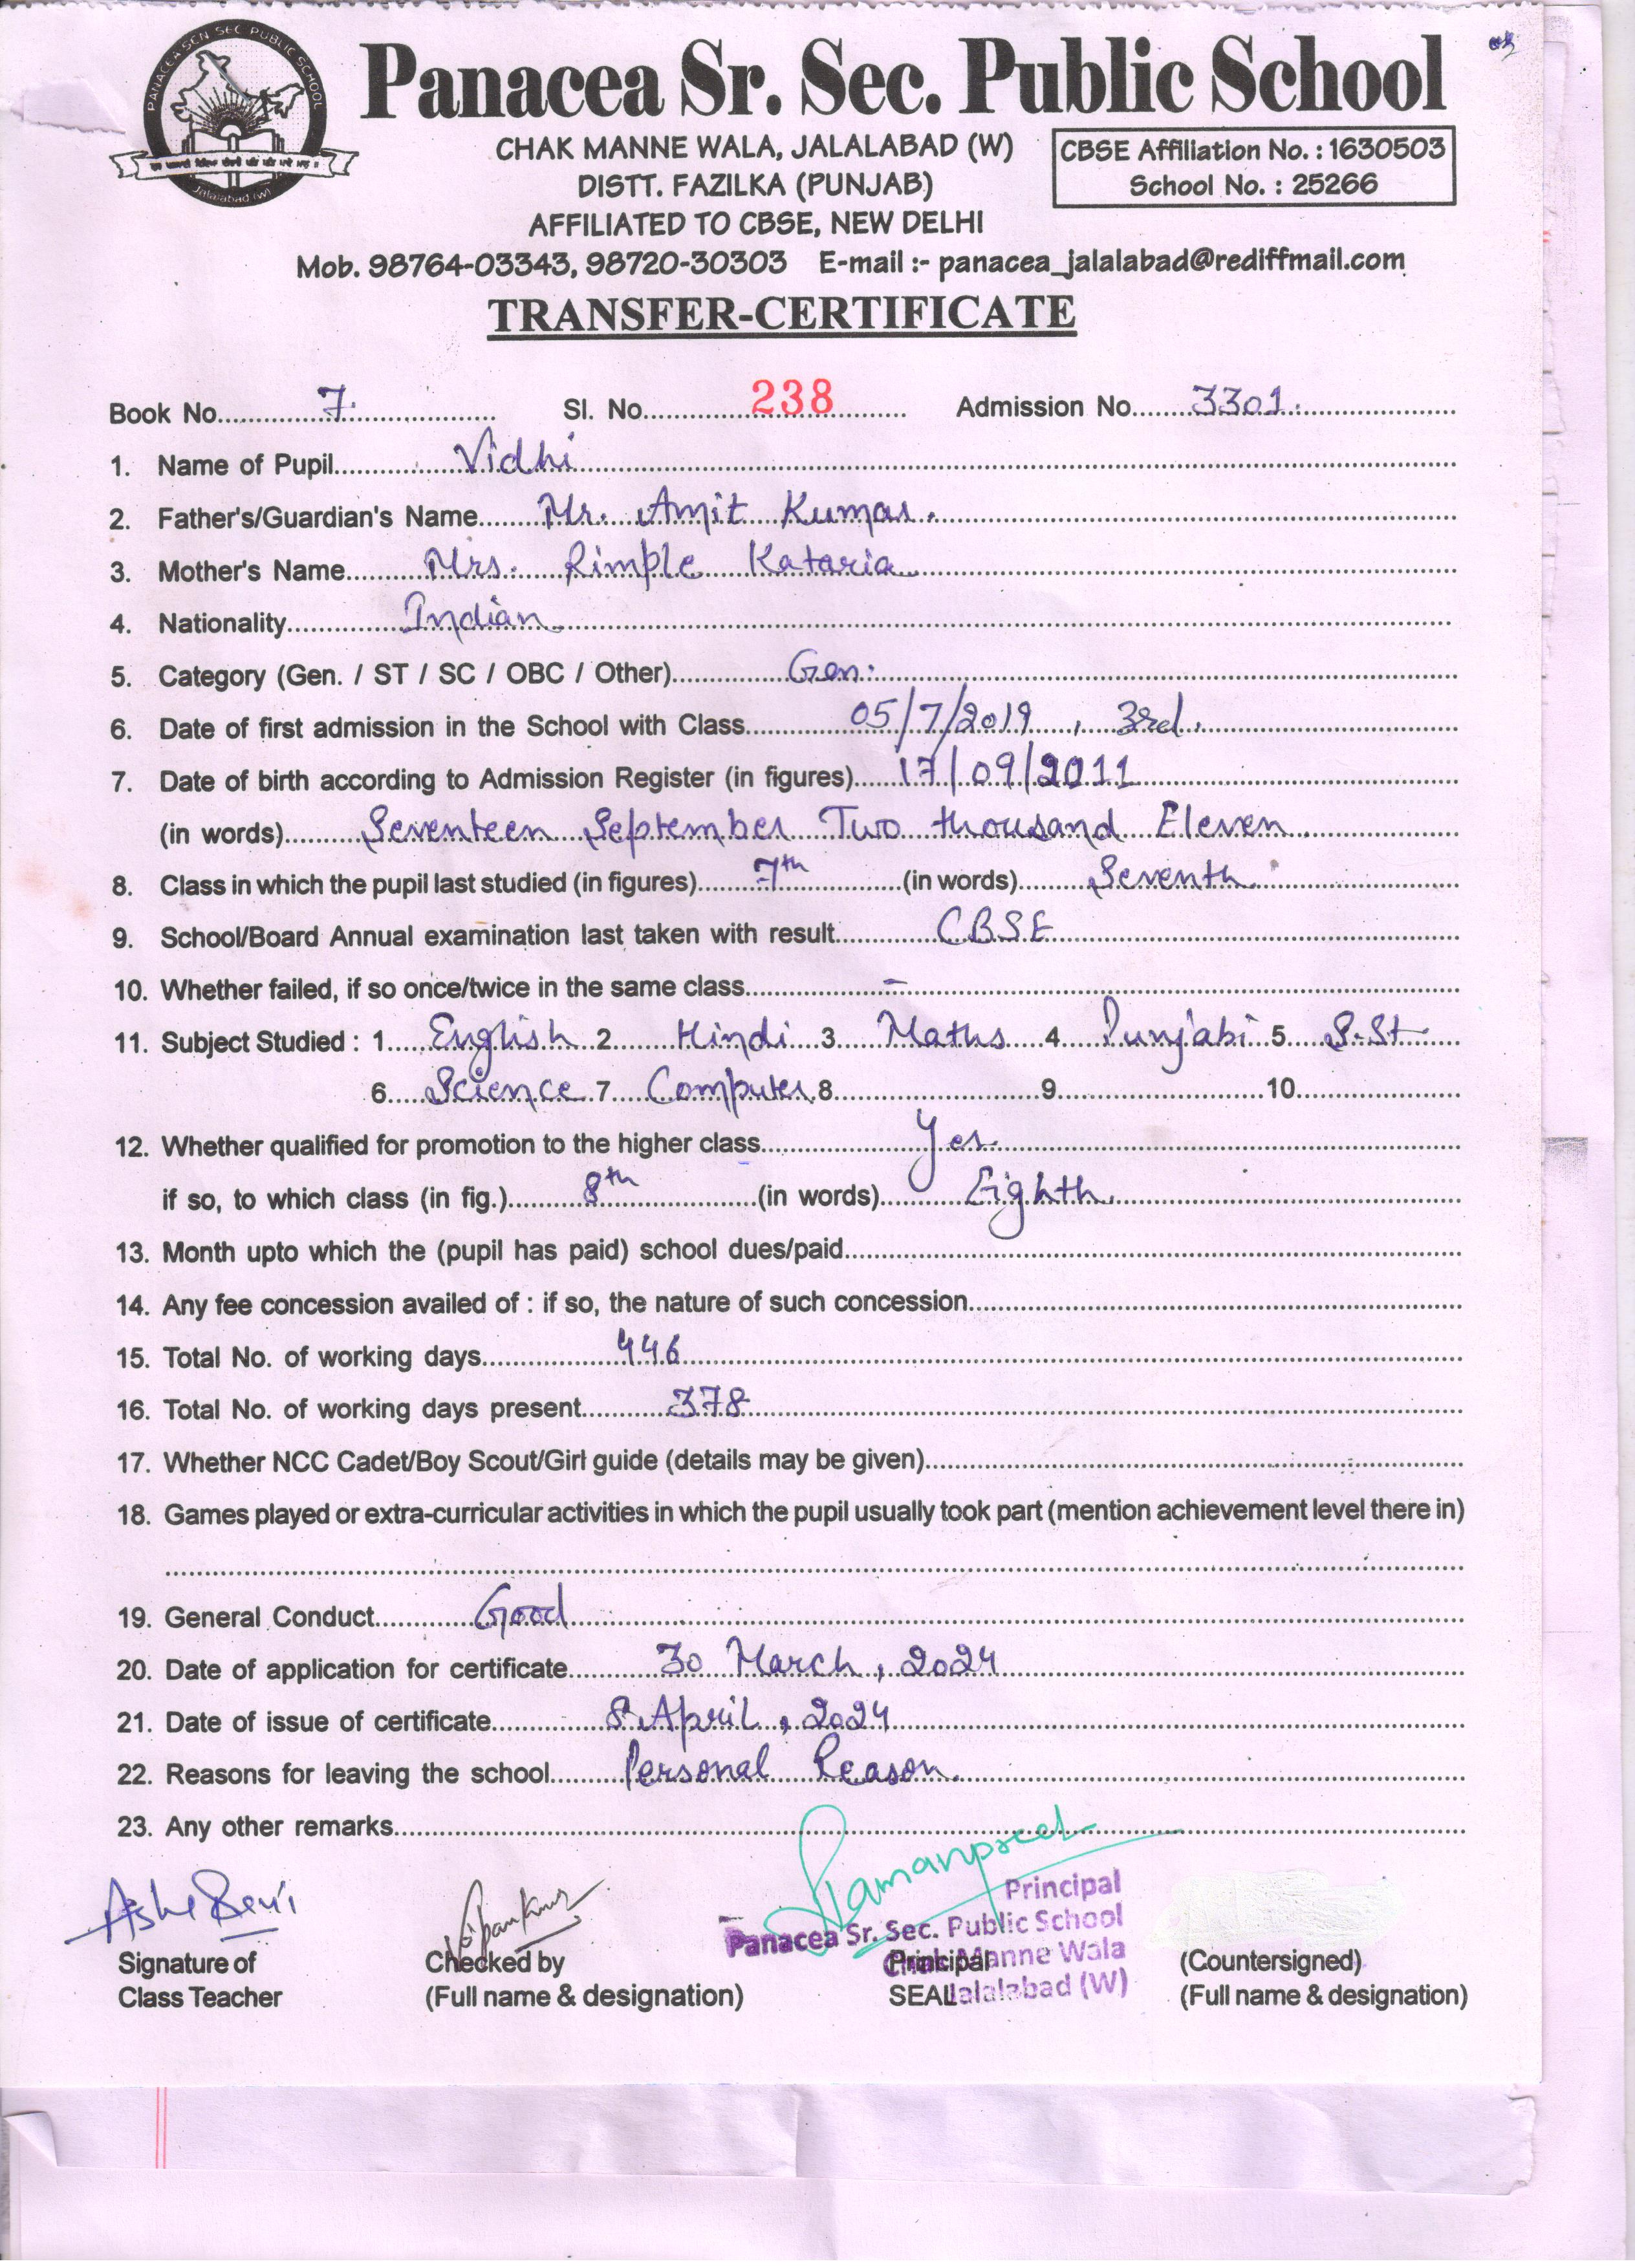 PANACEA SCN SEC PUBLIC SCHOOL
Jalalabad (W)
Panacea Sr. Sec. Public School
CHAK MANNE WALA, JALALABAD (W)
CBSE Affiliation No. : 1630503
DISTT. FAZILKA (PUNJAB)
School No. : 25266
AFFILIATED TO CBSE, NEW DELHI
Mob. 98764-03343, 98720-30303 E-mail :- panacea_jalalabad@rediffmail.com
TRANSFER-CERTIFICATE
Book No. 7. Sl. No. 238 Admission No. 3301.
1. Name of Pupil Vidhi
2. Father's/Guardian's Name Mr. Amit Kumar.
3. Mother's Name Mrs. Rimple Kataria
4. Nationality Indian
5. Category (Gen. / ST / SC / OBC / Other) Gen.
6. Date of first admission in the School with Class 05/7/2019, 3rd.
7. Date of birth according to Admission Register (in figures) 17/09/2011
(in words) Seventeen September Two thousand Eleven
8. Class in which the pupil last studied (in figures) 7th (in words) Seventh
9. School/Board Annual examination last taken with result CBSE
10. Whether failed, if so once/twice in the same class –
11. Subject Studied : 1 English 2 Hindi 3 Maths 4 Punjabi 5 S.St
6 Science 7 Computer 8 9 10
12. Whether qualified for promotion to the higher class Yes.
if so, to which class (in fig.) 8th (in words) Eighth.
13. Month upto which the (pupil has paid) school dues/paid
14. Any fee concession availed of : if so, the nature of such concession
15. Total No. of working days 446
16. Total No. of working days present 378
17. Whether NCC Cadet/Boy Scout/Girl guide (details may be given)
18. Games played or extra-curricular activities in which the pupil usually took part (mention achievement level there in)
19. General Conduct Good
20. Date of application for certificate 30 March, 2024
21. Date of issue of certificate 8 April, 2024
22. Reasons for leaving the school Personal Reason.
23. Any other remarks
Ramanpreet
Principal
Panacea Sr. Sec. Public School
Chak Manne Wala
Jalalabad (W)
Signature of Checked by Principal (Countersigned)
Class Teacher (Full name & designation) SEAL (Full name & designation)